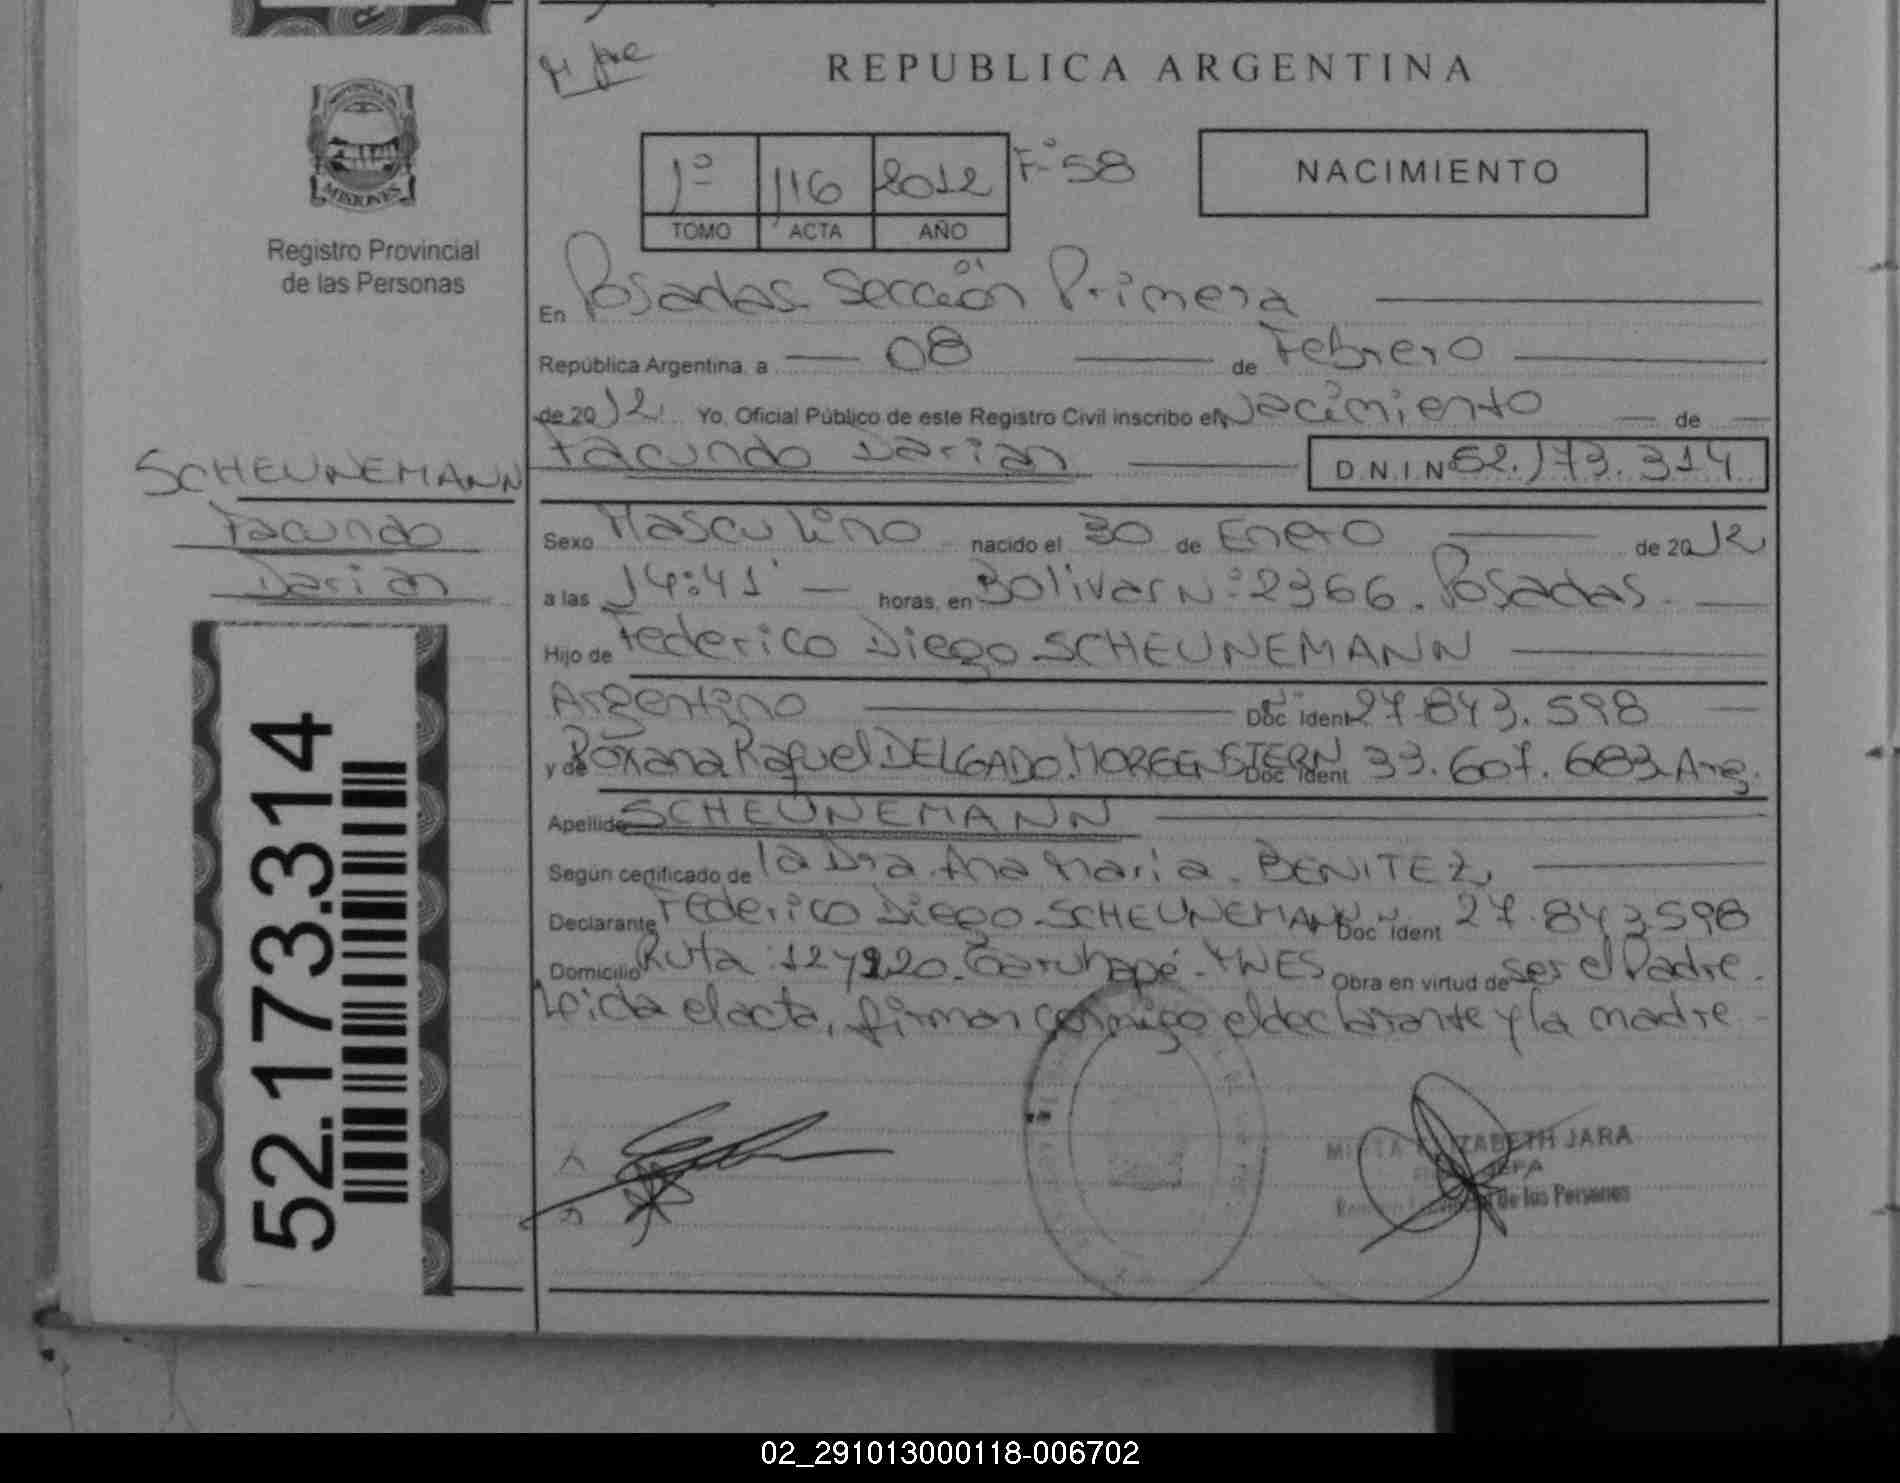 REPUBLICA ARGENTINA
PROVINCIA DE
MISIONES
Registro Provincial
de las Personas
1º 116 2012 Fº 58
TOMO ACTA AÑO
NACIMIENTO
En Posadas Sección Primera
República Argentina, a 08 de Febrero
de 2012 Yo, Oficial Público de este Registro Civil inscribo el Nacimiento de
Facundo Darian D.N.I.Nº 52.173.314
SCHEUNEMANN
Facundo
Darian
Sexo Masculino nacido el 30 de Enero de 2012
a las 14:41' horas, en Bolivar Nº 2366. Posadas
Hijo de Federico Diego SCHEUNEMANN
Argentino Doc Ident 27.843.598
y de Roxana Raquel DELGADO MORGENSTERN Doc Ident 33.607.683 Arg.
Apellido SCHEUNEMANN
Según certificado de la Dra. Ana Maria. BENITEZ
Declarante Federico Diego SCHEUNEMANN Doc Ident 27.843.598
Domicilio Ruta: 12 y 220. Garuhapé - MNES Obra en virtud de ser el Padre.
Leida el acta, firman conmigo el declarante y la madre
52.173.314
MIRTA ELIZABETH JARA
JEFA
de las Personas
02_291013000118-006702